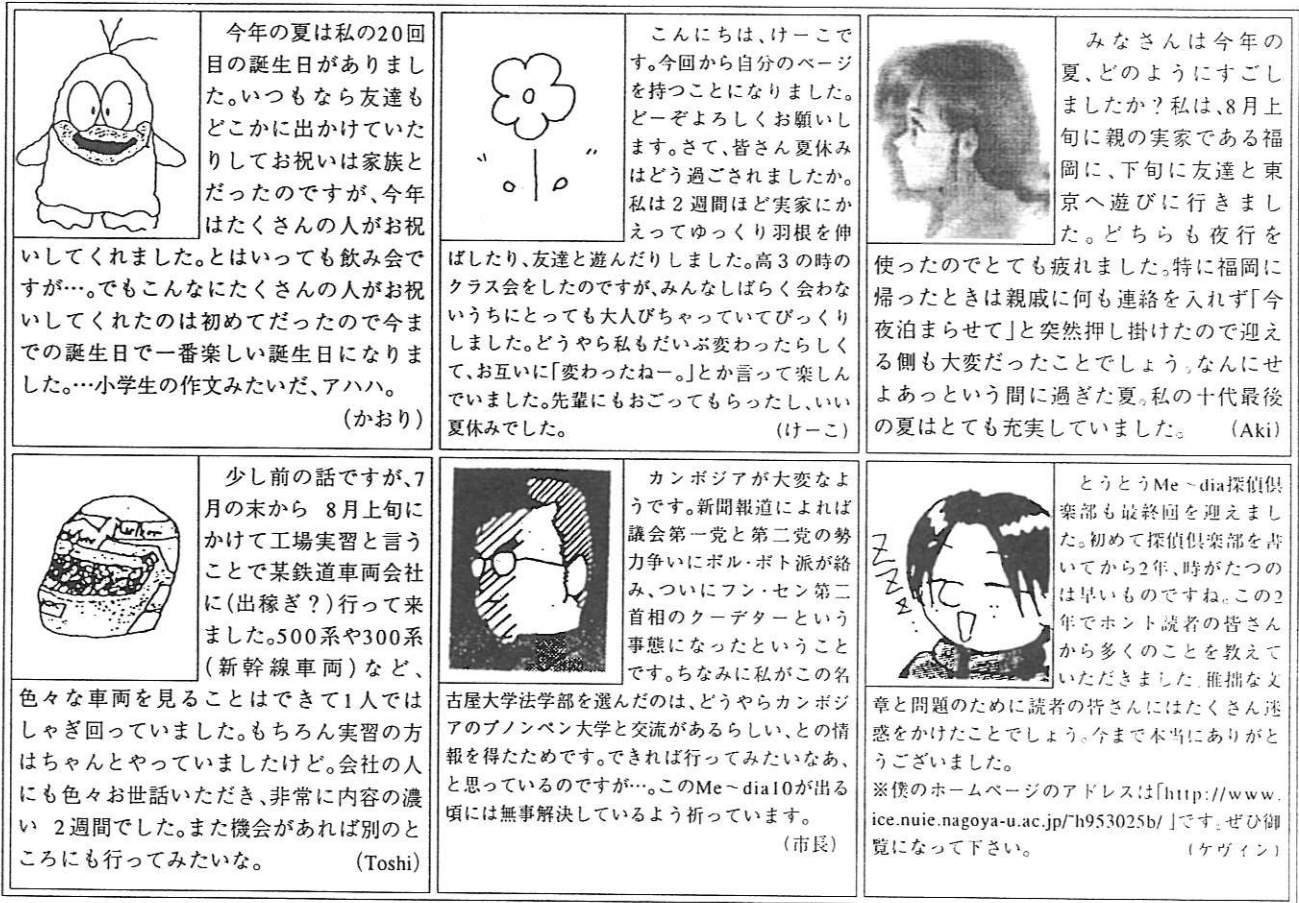 今年の夏は私の20回
目の誕生日がありまし
た。いつもなら友達も
どこかに出かけていた
りしてお祝いは家族と
だったのですが、今年
はたくさんの人がお祝
いしてくれました。とはいっても飲み会で
すが…。でもこんなにたくさんの人がお祝
いしてくれたのは初めてだったので今ま
での誕生日で一番楽しい誕生日になりま
した。…小学生の作文みたいだ、アハハ。
(かおり)
こんにちは、けーこで
す。今回から自分のページ
を持つことになりました。
どーぞよろしくお願いし
ます。さて、皆さん夏休み
はどう過ごされましたか。
私は2週間ほど実家にか
えってゆっくり羽根を伸
ばしたり、友達と遊んだりしました。高3の時の
クラス会をしたのですが、みんなしばらく会わな
いうちにとっても大人びちゃっていてびっくり
しました。どうやら私もだいぶ変わったらしく
て、お互いに「変わったねー。」とか言って楽しん
でいました。先輩にもおごってもらったし、いい
夏休みでした。 (けーこ)
みなさんは今年の
夏、どのようにすごし
ましたか?私は、8月上
旬に親の実家である福
岡に、下旬に友達と東
京へ遊びに行きまし
た。どちらも夜行を
使ったのでとても疲れました。特に福岡に
帰ったときは親戚に何も連絡を入れず「今
夜泊まらせて」と突然押し掛けたので迎え
る側も大変だったことでしょう。なんにせ
よあっという間に過ぎた夏。私の十代最後
の夏はとても充実していました。 (Aki)
少し前の話ですが、7
月の末から 8月上旬に
かけて工場実習と言う
ことで某鉄道車両会社
に(出稼ぎ?)行って来
ました。500系や300系
(新幹線車両)など、
色々な車両を見ることはできて1人では
しゃぎ回っていました。もちろん実習の方
はちゃんとやっていましたけど。会社の人
にも色々お世話いただき、非常に内容の濃
い 2週間でした。また機会があれば別のと
ころにも行ってみたいな。 (Toshi)
カンボジアが大変なよ
うです。新聞報道によれば
議会第一党と第二党の勢
力争いにポル・ポト派が絡
み、ついにフン・セン第二
首相のクーデターという
事態になったということ
です。ちなみに私がこの名
古屋大学法学部を選んだのは、どうやらカンボジ
アのプノンペン大学と交流があるらしい、との情
報を得たためです。できれば行ってみたいなあ、
と思っているのですが…。このMe~dia10が出る
頃には無事解決しているよう祈っています。
(市長)
ZZZz
とうとうMe~dia探偵倶
楽部も最終回を迎えまし
た。初めて探偵倶楽部を書
いてから2年、時がたつの
は早いものですね。この2
年でホント読者の皆さん
から多くのことを教えて
いただきました。稚拙な文
章と問題のために読者の皆さんにはたくさん迷
惑をかけたことでしょう。今まで本当にありがと
うございました。
※僕のホームページのアドレスは「http://www.
ice.nuie.nagoya-u.ac.jp/~h953025b/」です。ぜひ御
覧になって下さい。 (ケヴィン)